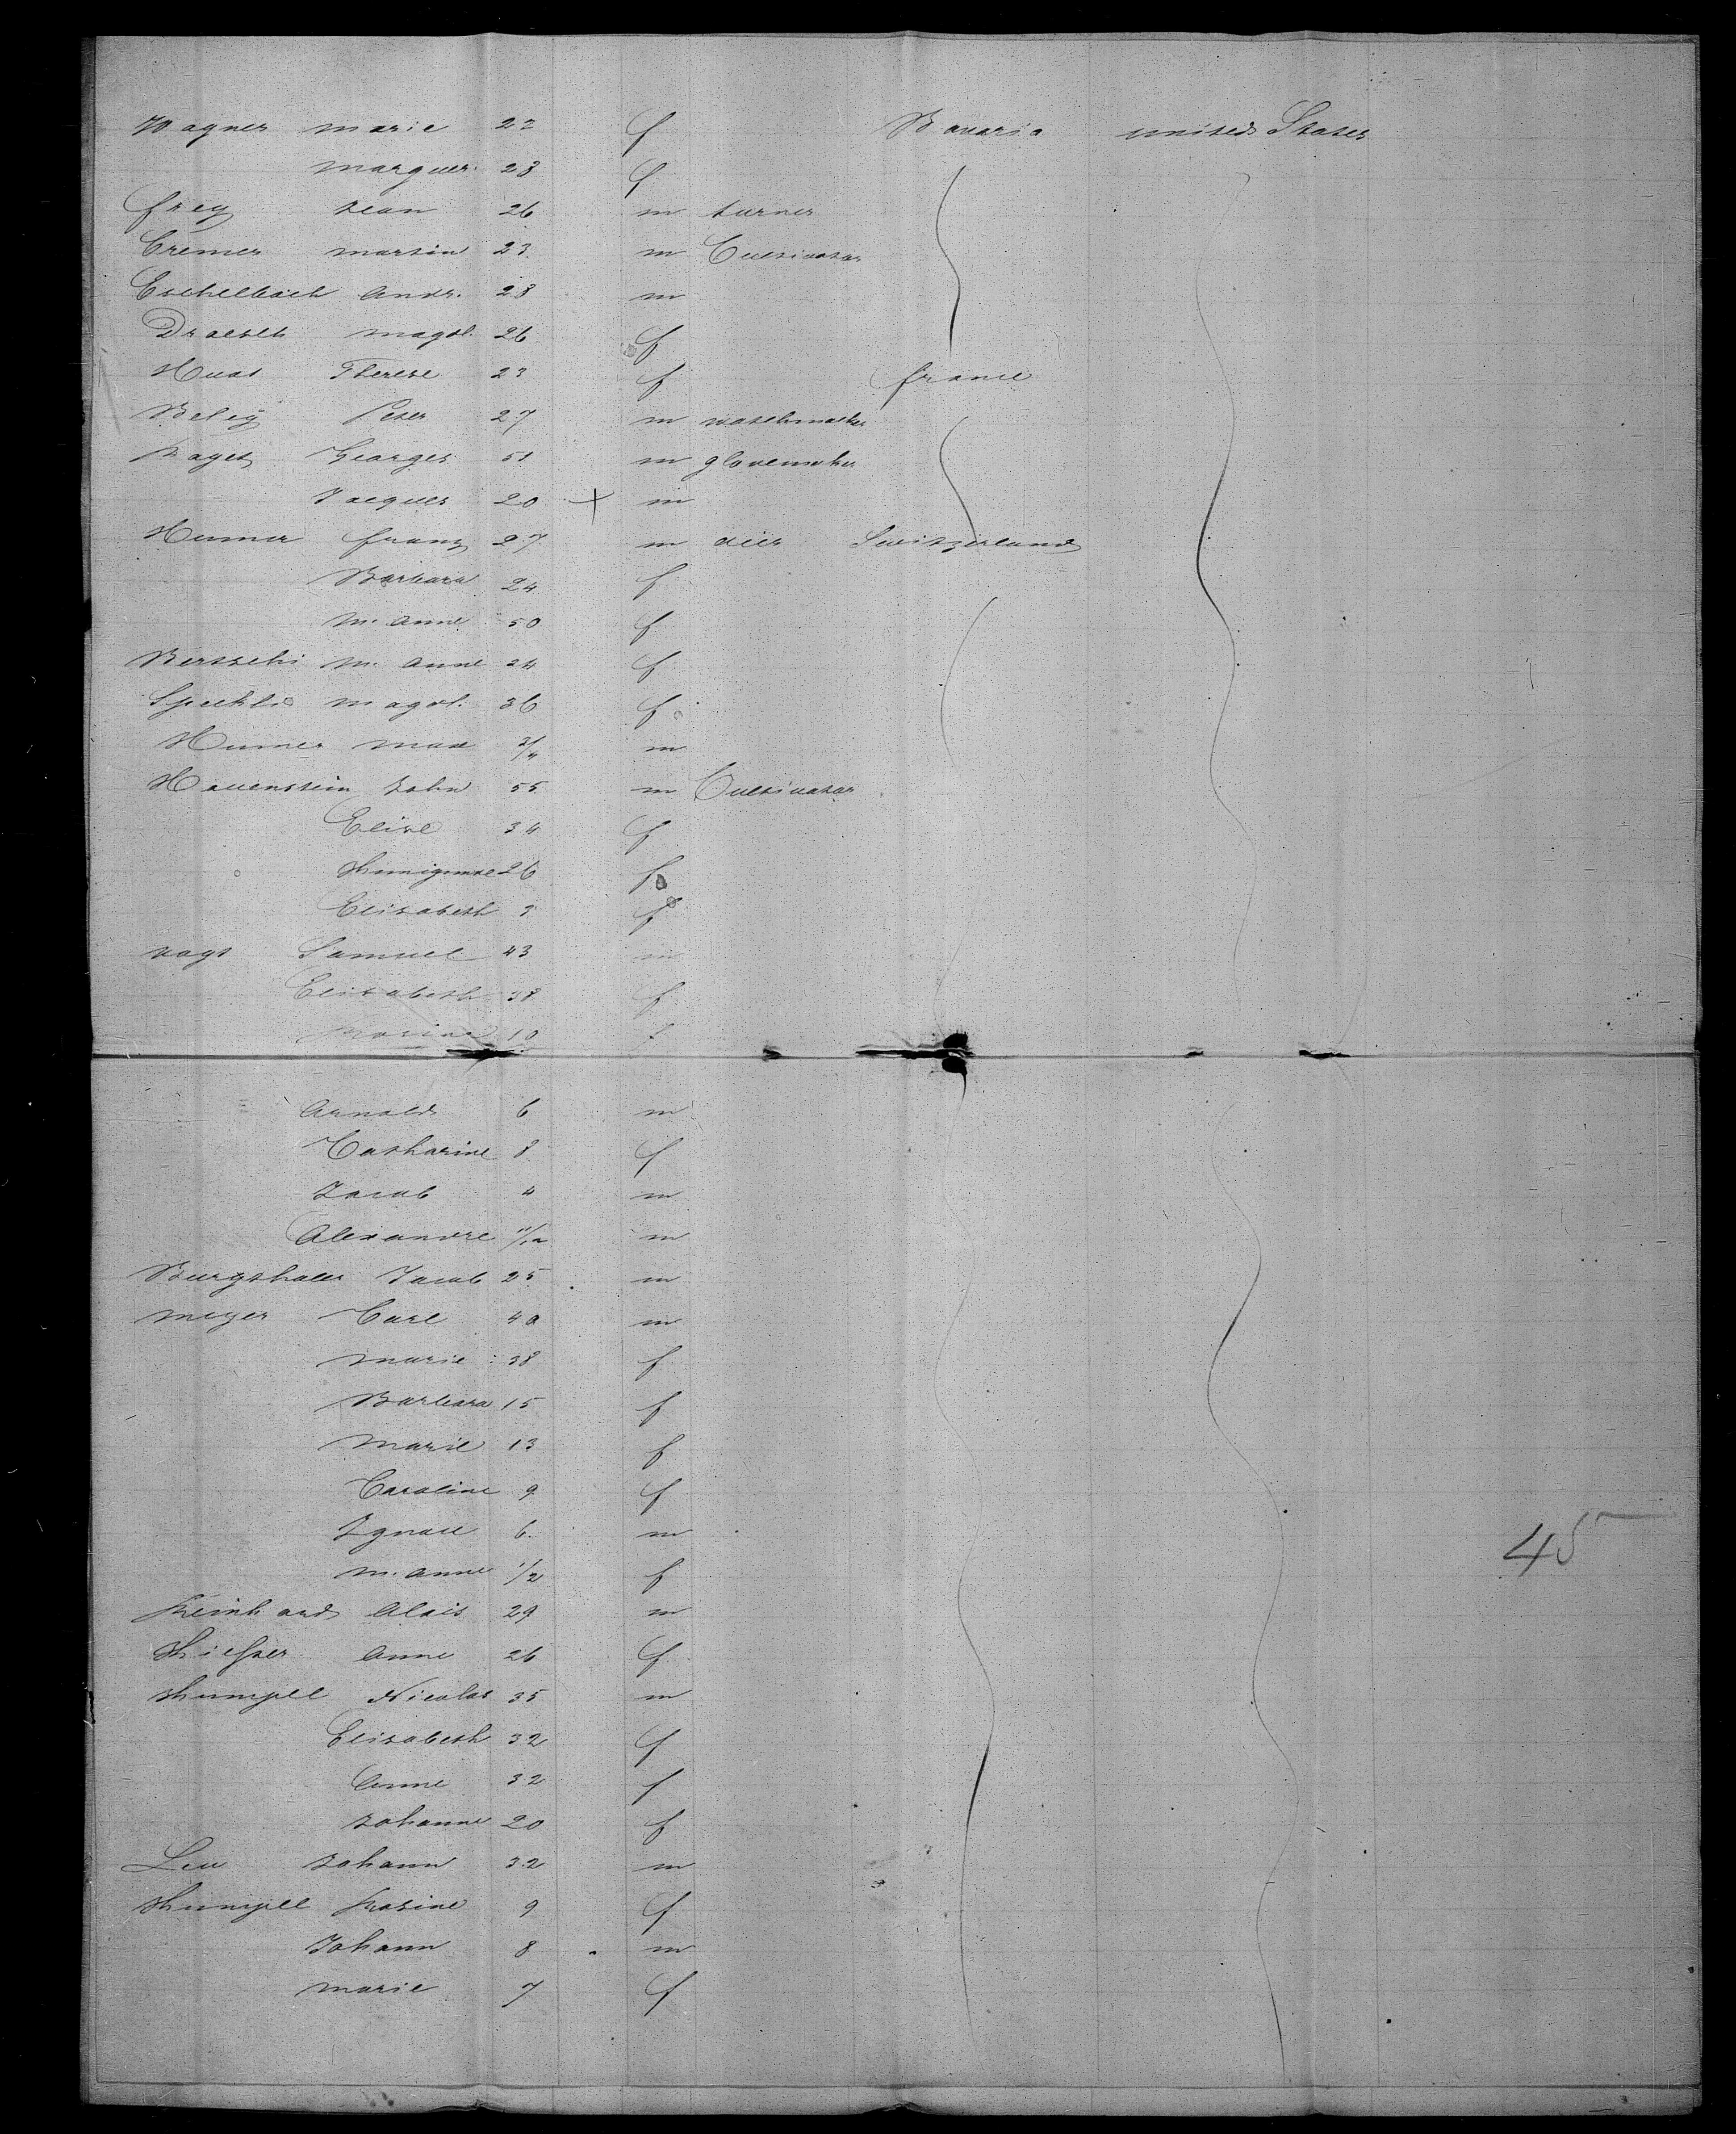 Wagner Marie 22 f Bavaria united States
Marguer. 28 f
frey Jean 26 m turner
Cremer Martin 23 m Cultivator
Eschelbach Andr. 28 m
Magdl. 26 f
Therese 23 f france
Peter 27 m watchmacker
Georges 51 m glovemaker
Jacques 20 + m
Humer franz 27 m Switzerland
Barbara 24 f
M. Anne 50 f
Bertschi M. Anne 24 f
Magdl. 36 f
Humer Max 3/4 m
Hauenstein John 55 m Cultivator
Elise 34 f
26 f
Elisabeth 9 f
Vogt Samuel 43 m
Elisabeth 38 f
Rosina 10 f
Arnold 6 m
Catharine 8 f
Jacob 4 m
Alexandre 11/12 m
Burgthaler Jacob 25 m
Meyer Carl 40 m
Marie 38 f
Barbara 15 f
Marie 13 f
Caroline 9 f
Ignace 6 m 45
M. Anne 1/2 f
Reinhard Alois 29 m
Anne 26 f
Nicolas 35 m
Elisabeth 32 f
Anne 32 f
Johanne 20 f
Leu Johann 32 m
Rosine 9 f
Johann 8 m
Marie 7 f